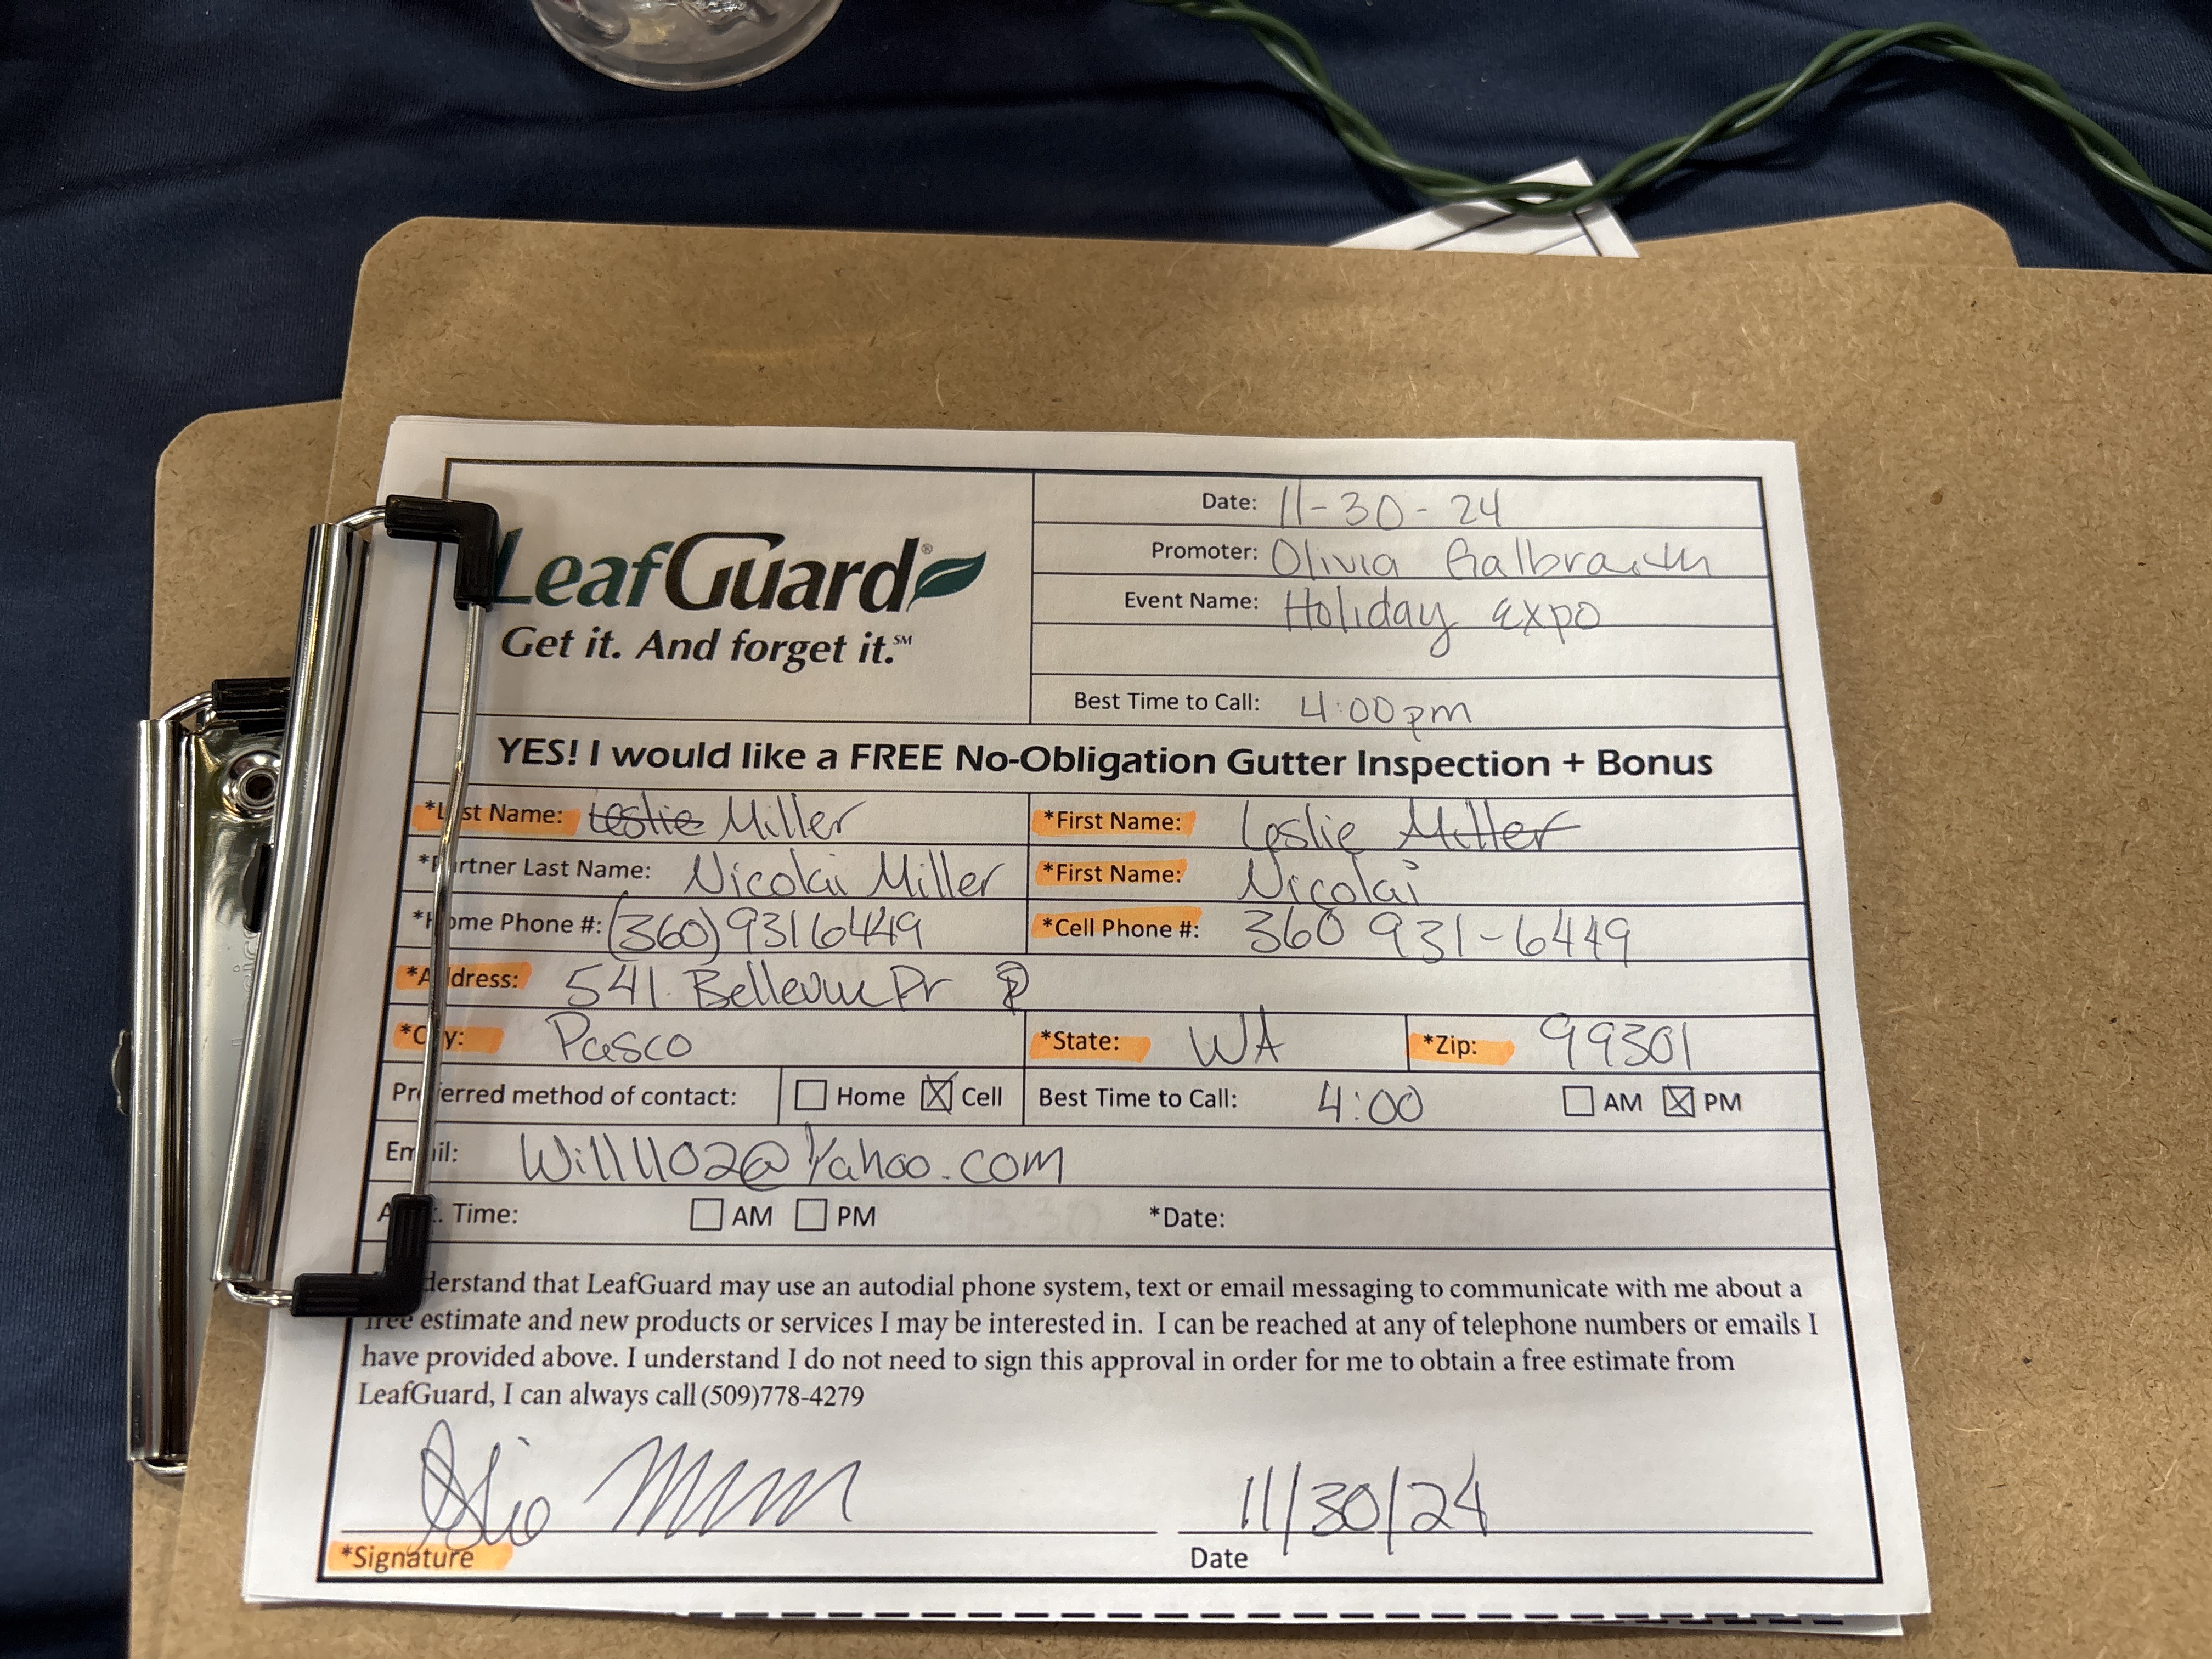 LeafGuard®
Get it. And forget it.℠
Date: 11-30-24
Promoter: Olivia Galbraith
Event Name: Holiday expo
Best Time to Call: 4:00pm
YES! I would like a FREE No-Obligation Gutter Inspection + Bonus
*Last Name: Leslie Miller *First Name: Leslie Miller
*Partner Last Name: Nicolai Miller *First Name: Nicolai
*Home Phone #: (360) 931 6449 *Cell Phone #: 360 931-6449
*Address: 541 Dr
*City: Pasco *State: WA *Zip: 99301
Preferred method of contact: Home Cell Best Time to Call: 4:00 AM PM
Email: Willll02@Yahoo.com
Time: AM PM *Date:
understand that LeafGuard may use an autodial phone system, text or email messaging to communicate with me about a
free estimate and new products or services I may be interested in. I can be reached at any of telephone numbers or emails I
have provided above. I understand I do not need to sign this approval in order for me to obtain a free estimate from
LeafGuard, I can always call (509)778-4279
11/30/24
*Signature Date